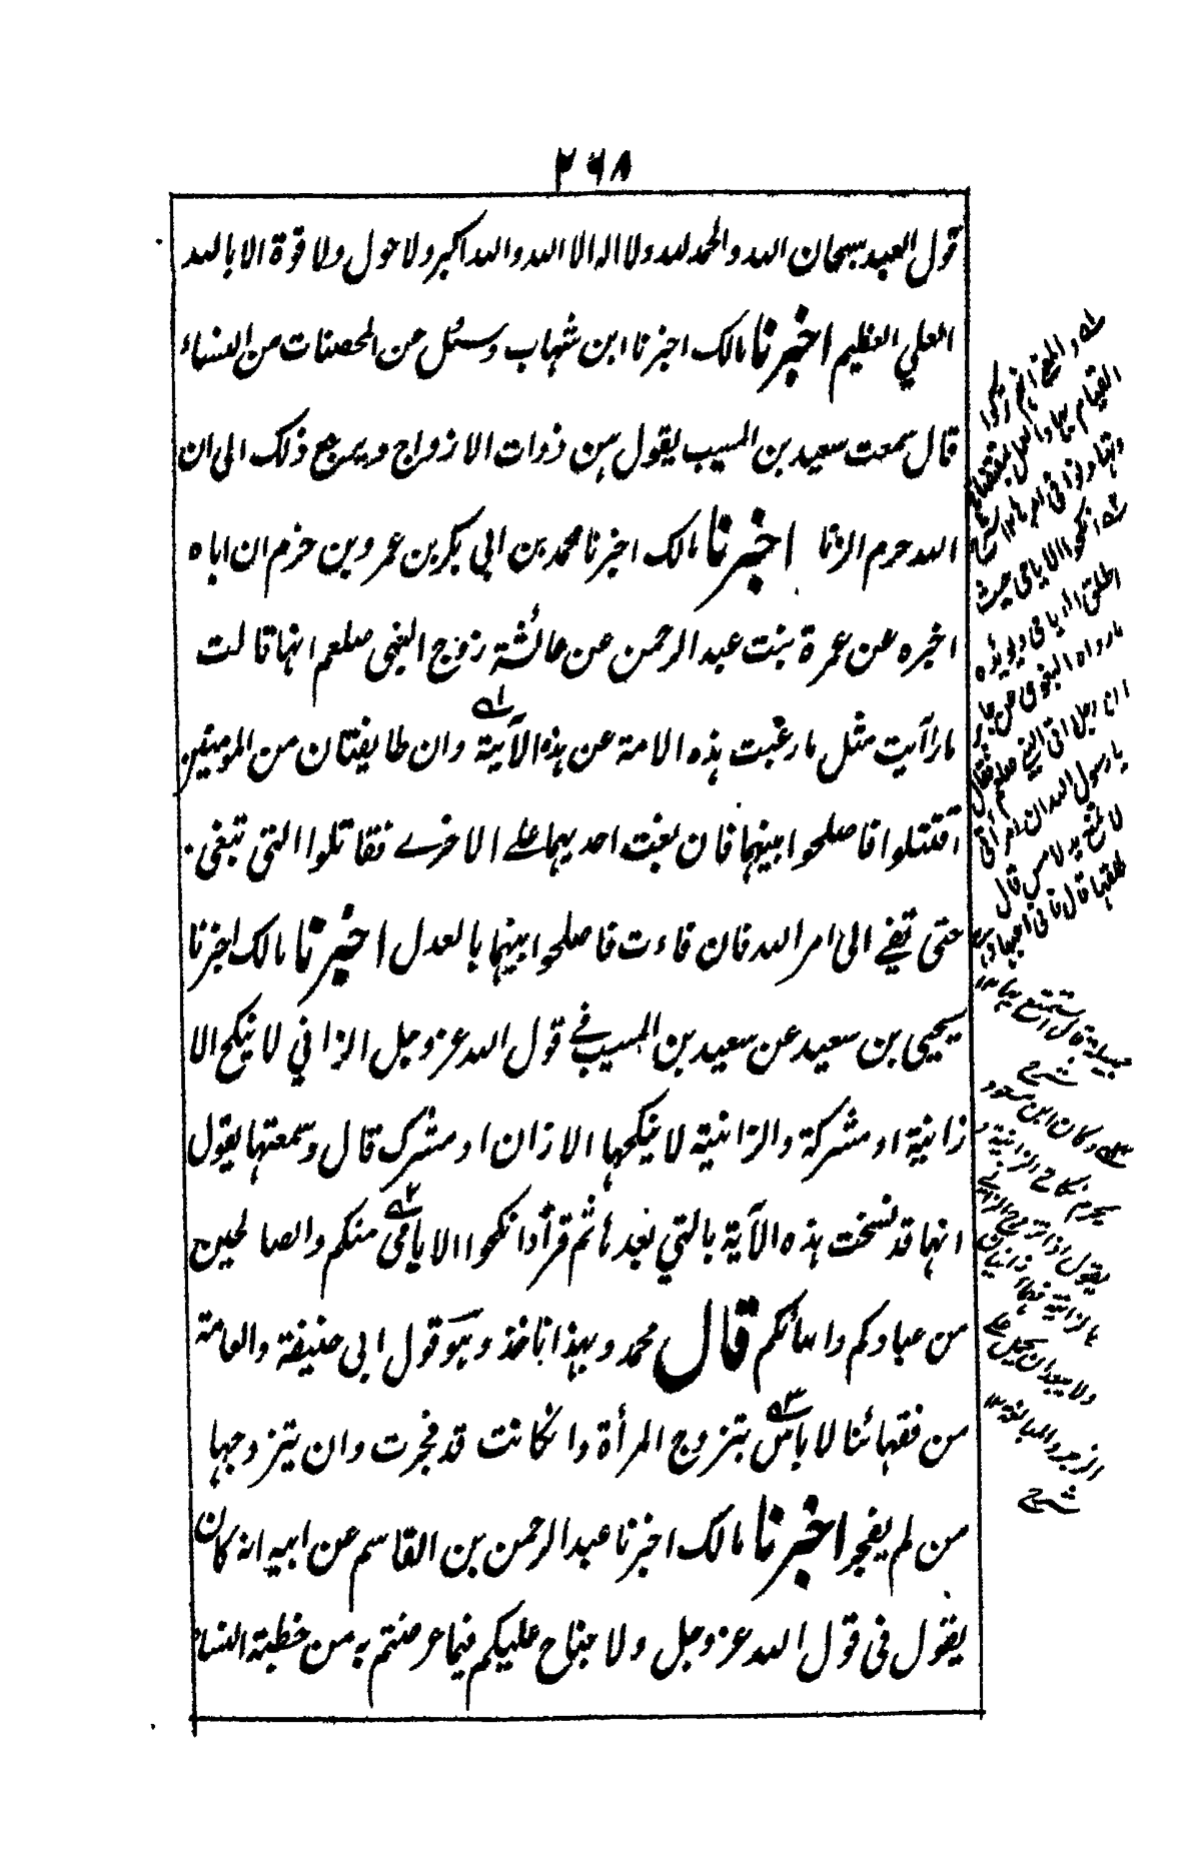 ٢٦٨
قول العبد سبحان الله والحمد لله ولا اله الا الله والله اكبر ولا حول ولا قوة الا بالله
العلي العظيم اخبرنا مالك اخبرنا ابن شهاب وسئل عن المحصنات من النساء
قال سمعت سعيد بن المسيب يقول هن ذوات الازواج ويرجع ذلك الى ان
الله حرم الزنا اخبرنا مالك اخبرنا محمد بن ابي بكر بن عمرو بن حزم ان اباه
اخبره عن عمرة بنت عبد الرحمن عن عائشة زوج النبي صلعم انها قالت
ما رأيت مثل ما رغبت هذه الامة عن هذه الآية وان طايفتان من المومنين
اقتتلوا فاصلحوا بينهما فان بغت احديهما على الاخرے فقاتلوا التي تبغي
حتى تفئ الى امر الله فان فاءت فاصلحوا بينهما بالعدل اخبرنا مالك اخبرنا
يحيى بن سعيد عن سعيد بن المسيب في قول الله عز وجل الزاني لا ينكح الا
زانية او مشركة والزانية لا ينكحها الا زان او مشرك قال وسمعتها يقول
انها قد نسخت هذه الآية بالتي بعدها ثم قرأ وانكحوا الايامى منكم والصالحين
من عبادكم وامائكم قال محمد وبهذا ناخذ وهو قول ابي حنيفة والعامة
من فقهائنا لا باس بتزوج المرأة وان كانت قد فجرت وان يتزوجها
من لم يفجر اخبرنا مالك اخبرنا عبد الرحمن بن القاسم عن ابيه انه كان
يقول في قول الله عز وجل ولا جناح عليكم فيما عرضتم به من خطبة النساء
انكحوا الايامى حيث
يا رسول الله ان امراتي
لا تمنع يد لامس قال
طلقها قال فاني احبها وهي
جميلة قال استمتع بها ١٢
شرح
وكان ابن مسعود
يحرم نكاح الزانية و
شرح